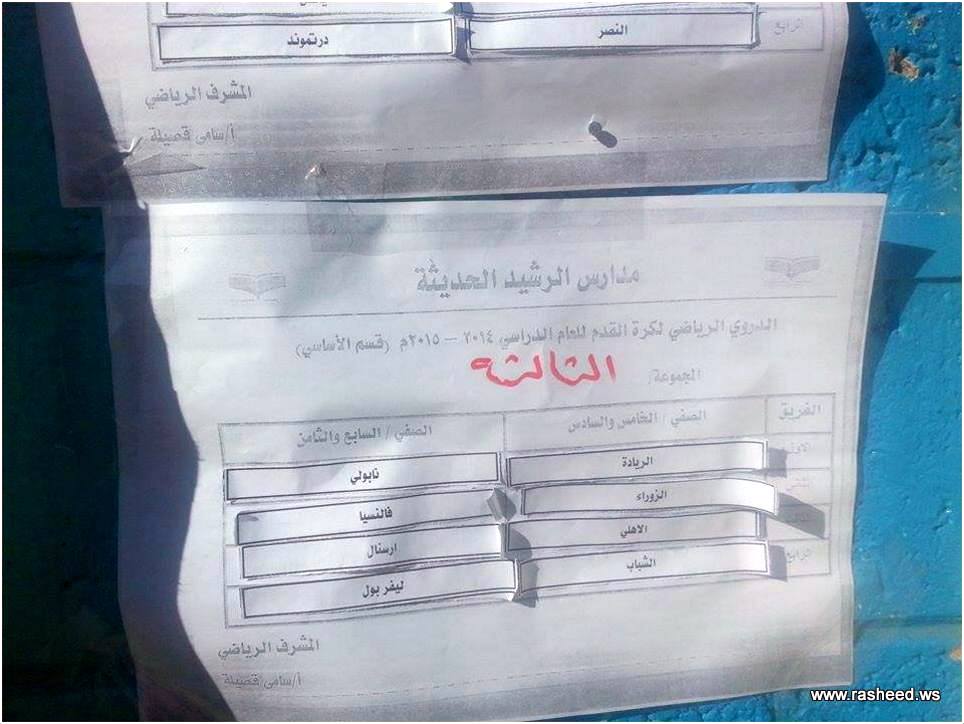 الرابع النصر درتموند
المشرف الرياضي
أ/سامي قصيلة
مدارس الرشيد الحديثة
الدروي الرياضي لكرة القدم للعام الدراسي ٢٠١٤ – ٢٠١٥م (قسم الأساسي)
المجموعة/ الثالثه
الفريق الصفي / الخامس والسادس الصفي / السابع والثامن
الريادة نابولي
الزوراء فالنسيا
الاهلي ارسنال
الرابع الشباب ليفر بول
المشرف الرياضي
أ/سامي قصيلة
www.rasheed.ws